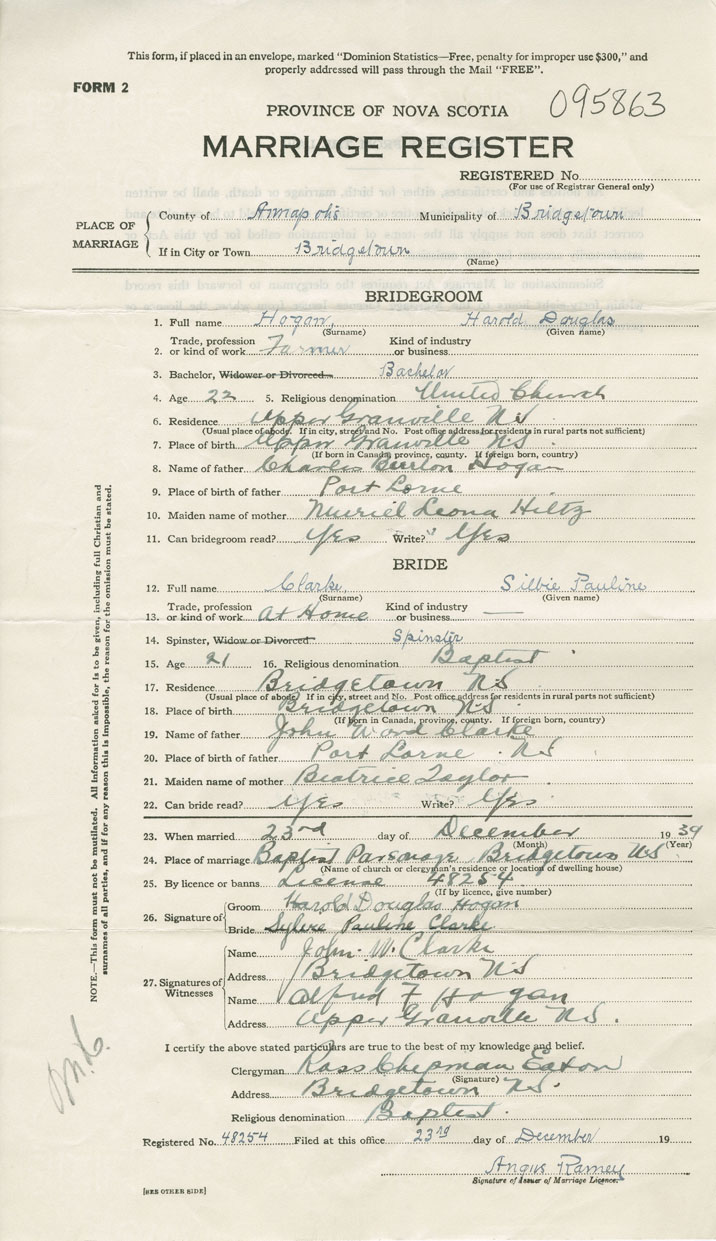 This form, if placed in an envelope, marked "Dominion Statistics—Free, penalty for improper use $300," and
properly addressed will pass through the Mail "FREE".
FORM 2
095863
PROVINCE OF NOVA SCOTIA
MARRIAGE REGISTER
REGISTERED No.
(For use of Registrar General only)
PLACE OF MARRIAGE
County of Annapolis Municipality of Bridgetown
If in City or Town Bridgetown
(Name)
BRIDEGROOM
1. Full name Hogan, Harold Douglas
(Surname) (Given name)
2. Trade, profession or kind of work Farmer Kind of industry or business
3. Bachelor, Widower or Divorced Bachelor
4. Age 22 5. Religious denomination United Church
6. Residence Upper Granville N.S
(Usual place of abode. If in city, street and No. Post office address for residents in rural parts not sufficient)
7. Place of birth Upper Granville N.S.
(If born in Canada, province, county. If foreign born, country)
8. Name of father Charles Burrlon Hogan
9. Place of birth of father Port Lorne
10. Maiden name of mother Muriel Leona Hiltz
11. Can bridegroom read? Yes Write? Yes
BRIDE
12. Full name Clarke, Silvie Pauline
(Surname) (Given name)
13. Trade, profession or kind of work At Home Kind of industry or business —
14. Spinster, Widow or Divorced Spinster
15. Age 21 16. Religious denomination Baptist
17. Residence Bridgetown N.S
(Usual place of abode. If in city, street and No. Post office address for residents in rural parts not sufficient)
18. Place of birth Bridgetown N.S.
(If born in Canada, province, county. If foreign born, country)
19. Name of father John Ward Clarke
20. Place of birth of father Port Lorne N.S
21. Maiden name of mother Beatrice Taylor
22. Can bride read? Yes Write? Yes
23. When married 23rd day of December 1939
(Month) (Year)
24. Place of marriage Baptist Parsonage Bridgetown N.S
(Name of church or clergyman's residence or location of dwelling house)
25. By licence or banns License 48254
(If by licence, give number)
26. Signature of
Groom Harold Douglas Hogan
Bride Sylvie Pauline Clarke
27. Signatures of Witnesses
Name John. W. Clarke
Address Bridgetown N.S
Name Alfred F Hogan
Address Upper Granville N.S.
I certify the above stated particulars are true to the best of my knowledge and belief.
Clergyman Ross Chipman Eaton
(Signature)
Address Bridgetown N.S.
Religious denomination Baptist.
Registered No. 48254 Filed at this office 23rd day of December 19
Angus Ramey
Signature of Issuer of Marriage Licence.
[SEE OTHER SIDE]
NOTE.—This form must not be mutilated. All information asked for is to be given, including full Christian and
surnames of all parties, and if for any reason this is impossible, the reason for the omission must be stated.